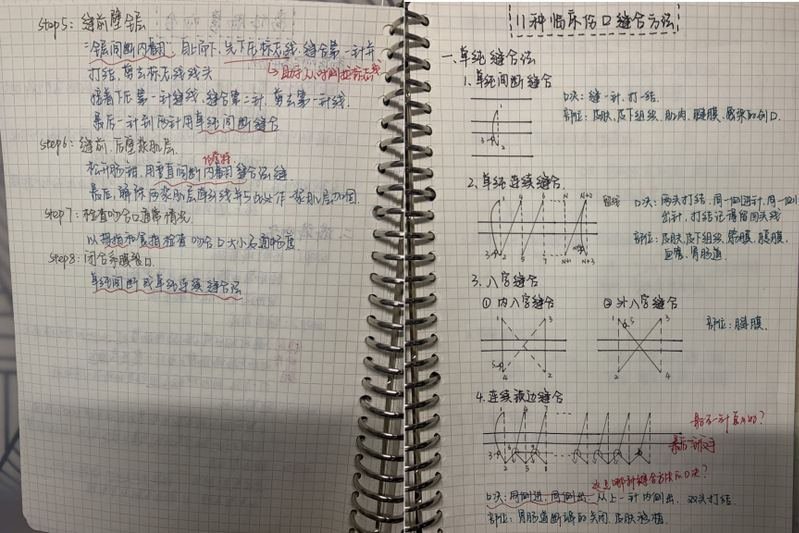 step5: 缝前壁全层
二层间断内翻, 自上而下, 先下后标志线, 缝合第一针并
打结, 剪去标志线线头
接着下后第一针缝线, 缝合第二针, 剪去第一针线.
最后一针到后针用单纯间断缝合
step6: 缝前、后壁浆肌层
松开肠钳, 用垂直间断内翻缝合法缝
step7: 检查吻合口通常情况.
以拇指和食指检查吻合口大小与通畅度
step8: 闭合系膜裂口.
单纯间断或单纯连续缝合法
11种临床伤口缝合方法
一、单纯缝合法
1.单纯间断缝合
口决: 缝一针, 打一结.
部位: 皮肤、皮下组织、肌肉、腱膜、感染的创口.
1
3
2
2.单纯连续缝合
口决: 两头打结, 同一侧进针, 同一侧
出针, 打结记得留回头线
部位: 皮肤、皮下组织、筋膜、腹膜,
血管、胃肠道
1 4 6 N N+2
3
2 5 N+1 N+3
3.八字缝合
① 内八字缝合
② 外八字缝合
部位: 腱膜.
1 3
5
2 4
1 5 3
2 4
4.连续锁边缝合
1 4 7
3
2 5 8
最后一针真的?
这是哪种缝合方法的口决?
口决: 同侧进, 同侧出, 从上一针内侧出, 双头打结.
部位: 胃肠道断端的关闭, 皮肤移植